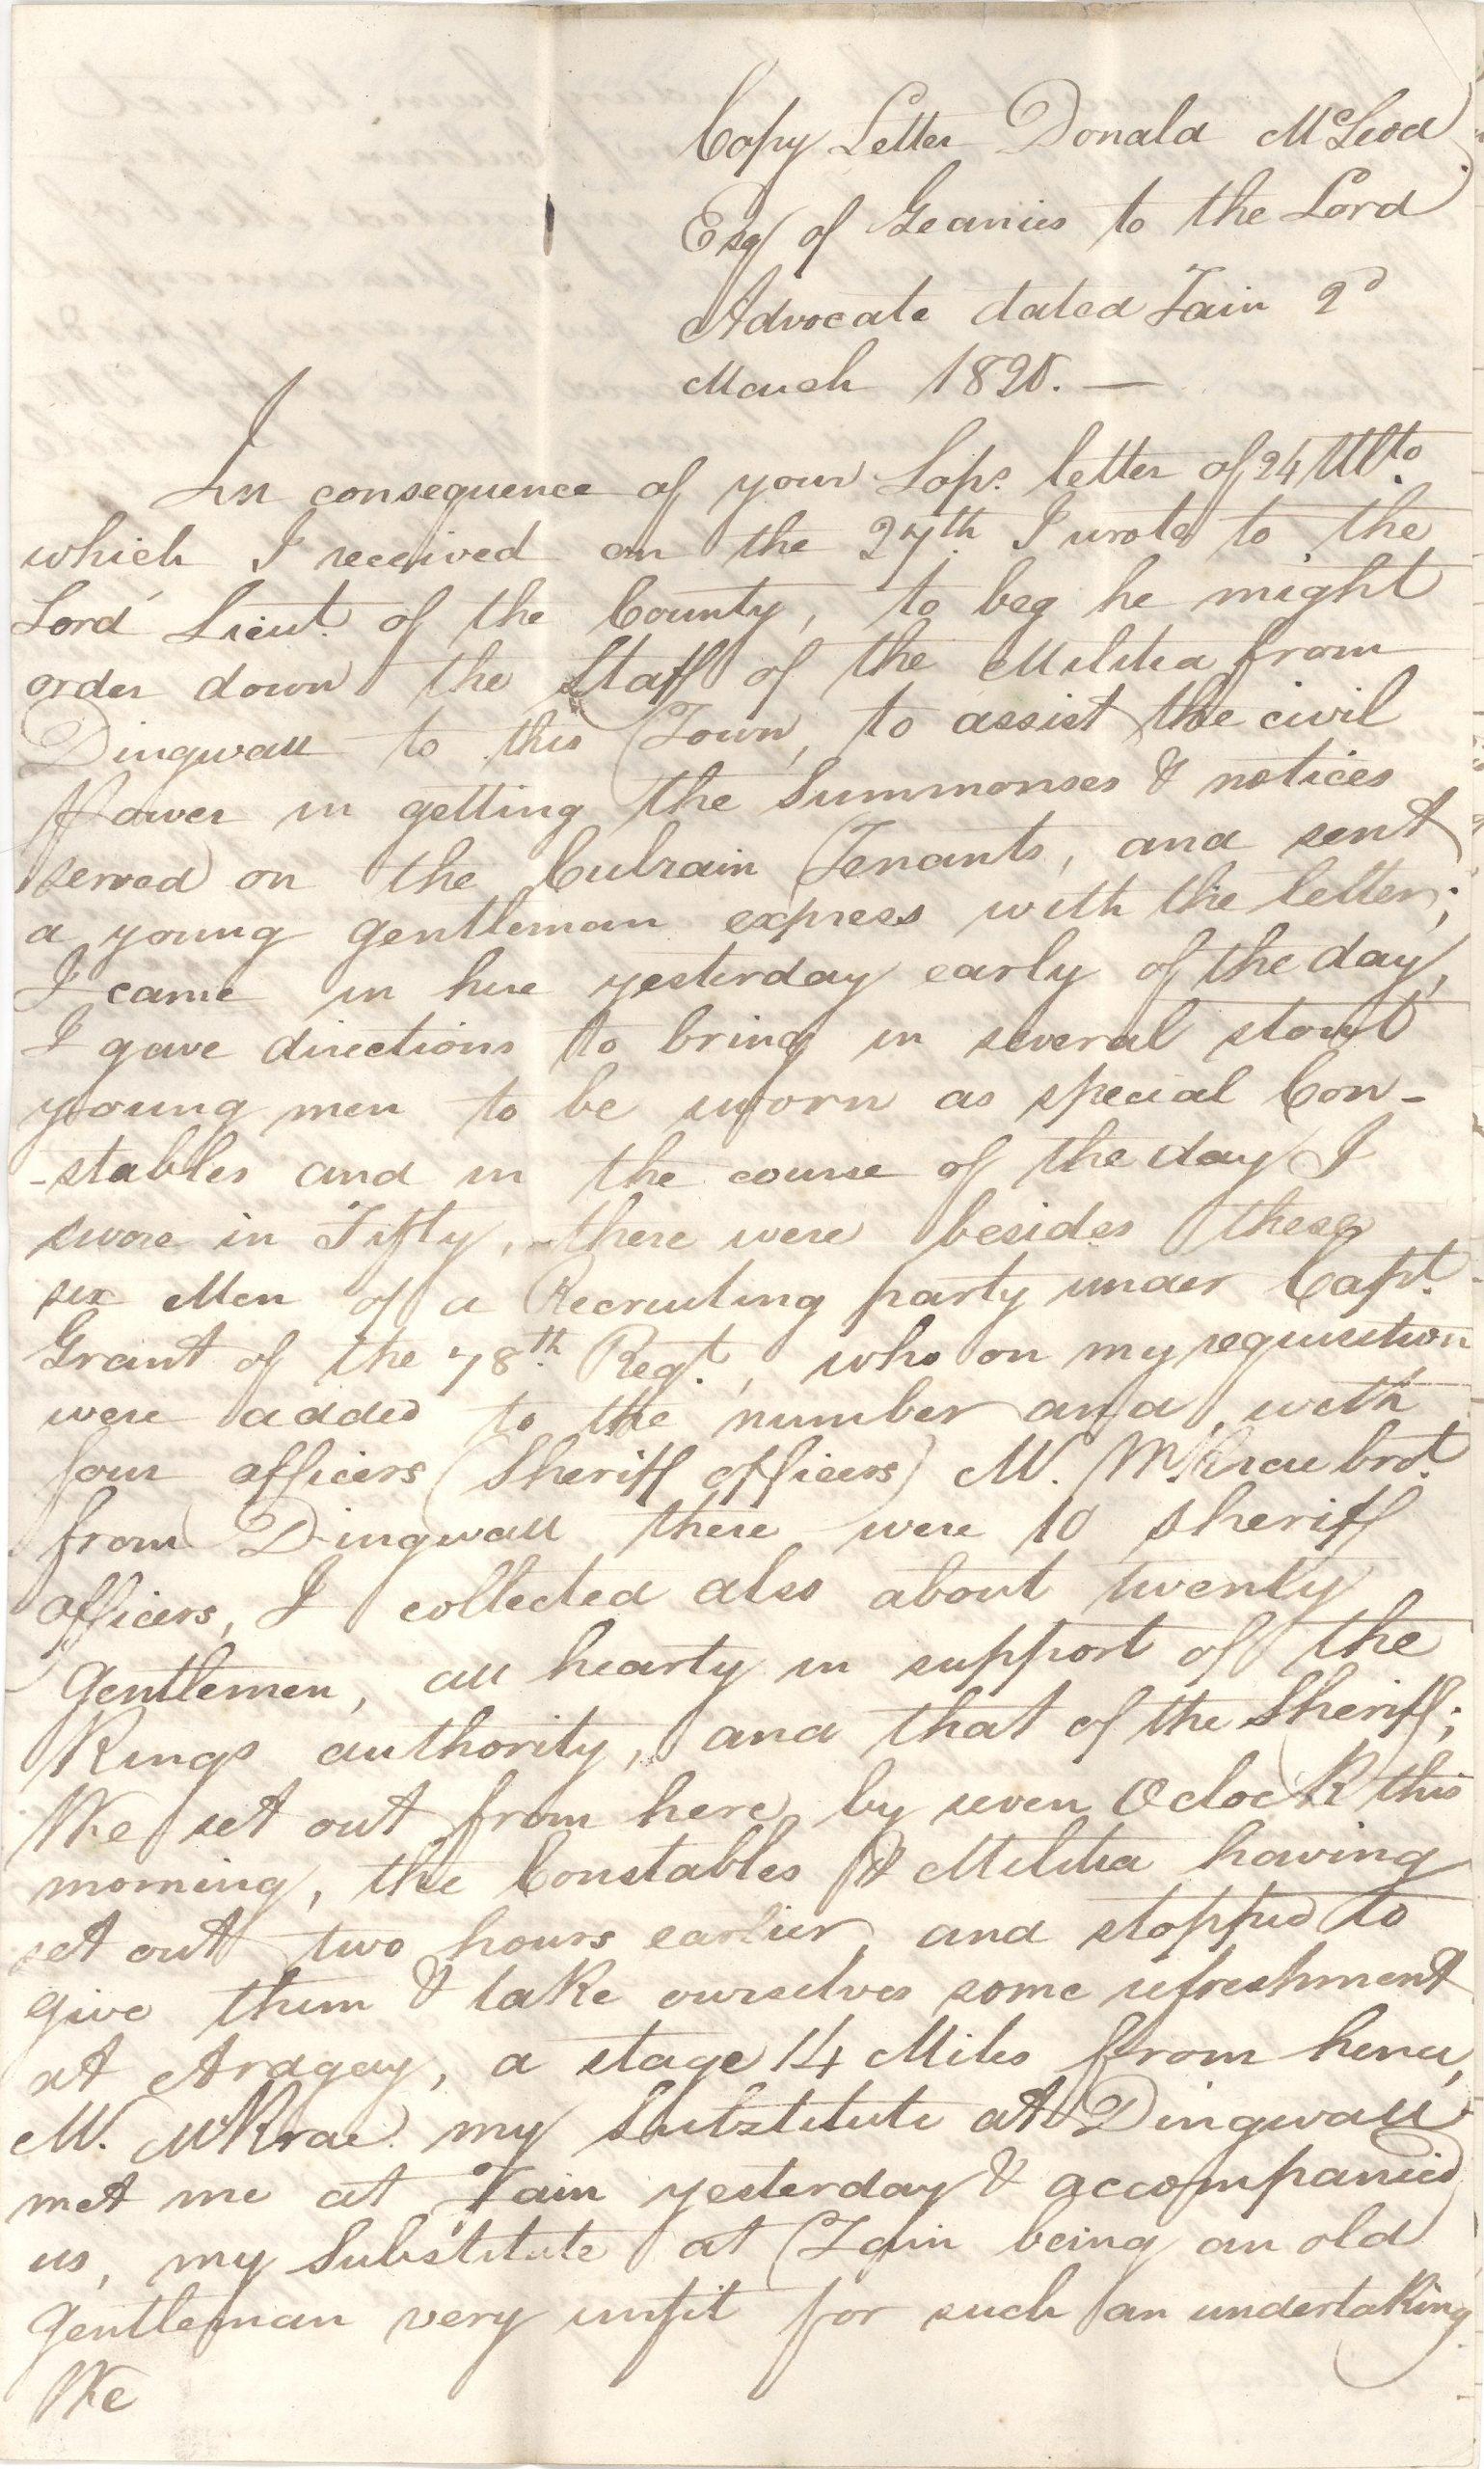 Copy Letter Donald McLeod
Esq of Geanies to the Lord
Advocate dated Tain 2d
March 1820. —
In consequence of your Lops. letter of 24 Ulto.
which I received on the 27th. I wrote to the
Lord Lieut. of the County, to beg he might
order down the Staff of the Militia from
Dingwall to this Town, to assist the civil
Power in getting the Summonses & notices
served on the Culrain Tenants, and sent
a young gentleman express with the letter;
I came in here yesterday early of the day,
I gave directions to bring in several stout
young men to be sworn as special Con-
-stables and in the course of the day I
swore in Fifty, there were besides these
six Men of a Recruiting party under Capt.
Grant of the 78th. Regt., who on my requisition
were added to the number and, with
four officers (Sheriff officers) M. McKrae brot.
from Dingwall there were 10 Sheriff
officers, I collected also about twenty
Gentlemen, all hearty in support of the
Kings authority, and that of the Sheriff;
We set out from here by seven OClock this
morning, the Constables & Militia having
set out two hours earlier and stopped to
give them & take ourselves some refreshment
at Ardgay, a stage 14 Miles from hence,
M. McKrae my Substitute at Dingwall
met me at Tain yesterday & accompanied
us, my Substitute at Tain being an old
Gentleman very unfit for such an undertaking.
We